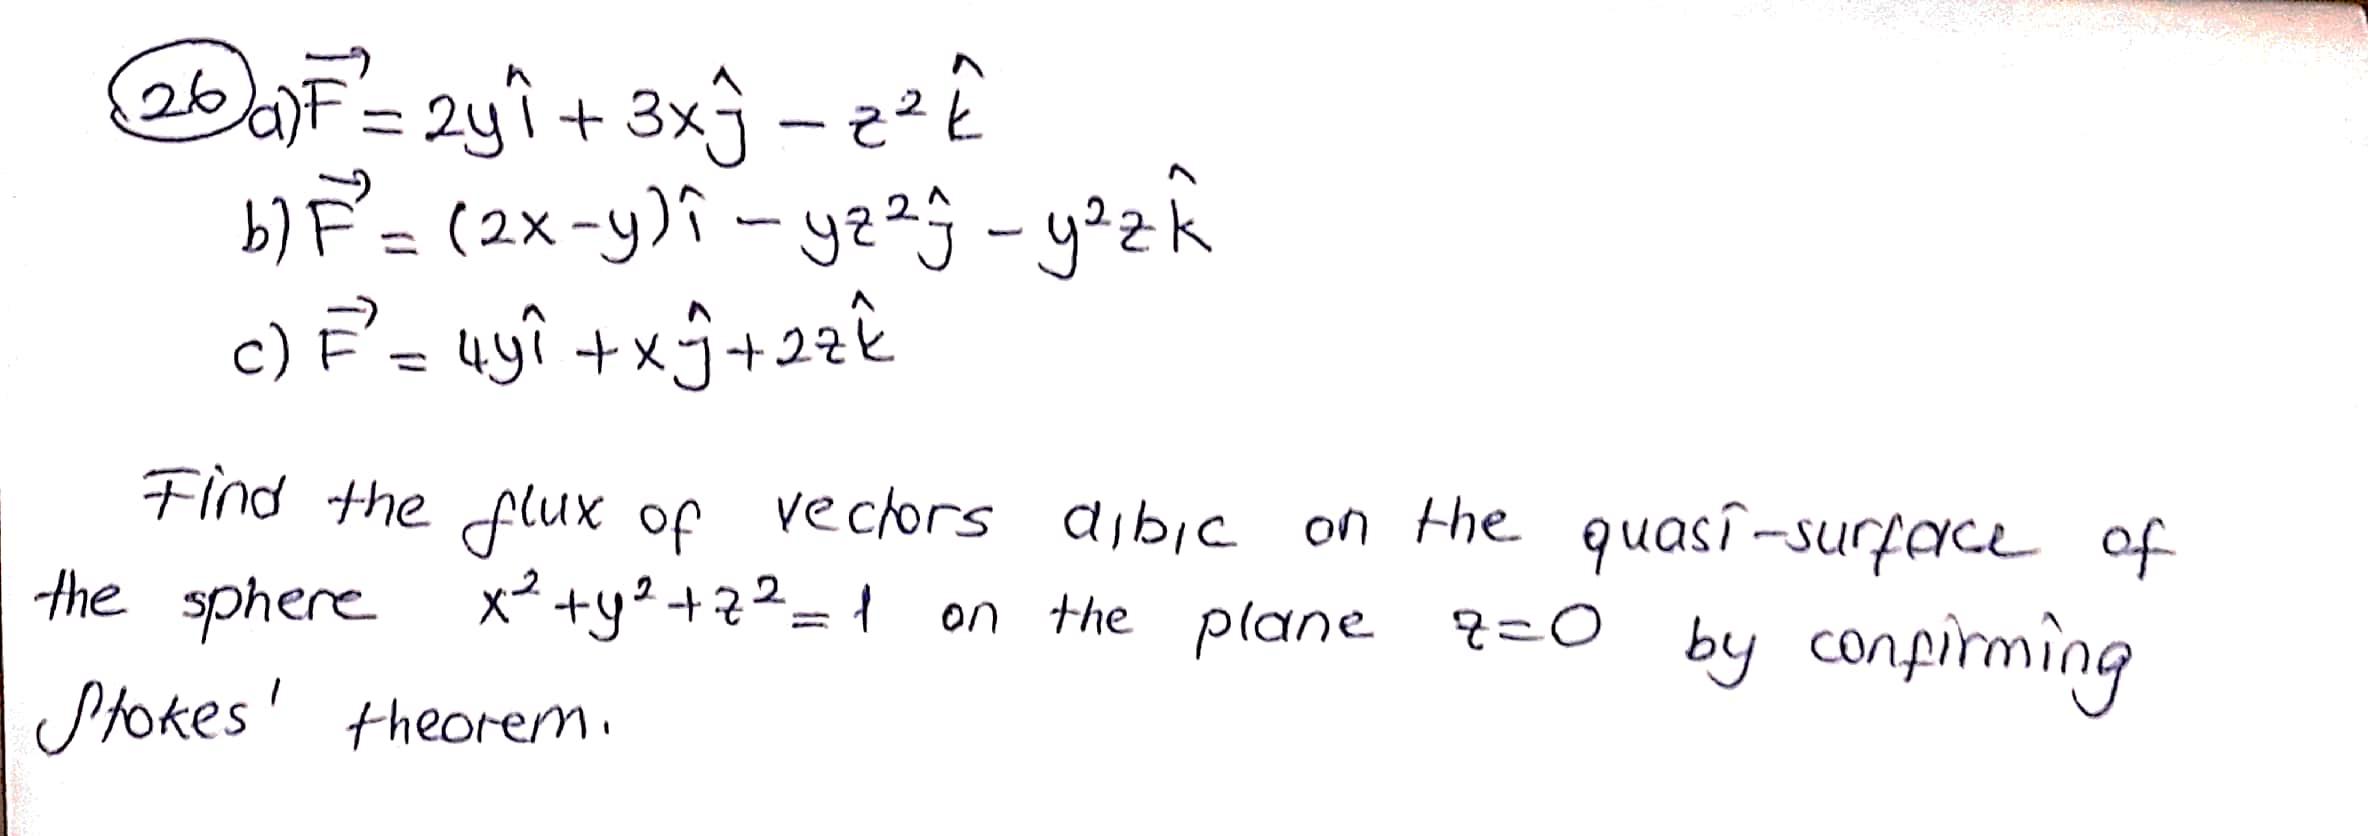 26 a) F⃗ = 2yî + 3xĵ - z²k̂
b) F⃗ = (2x-y)î - yz²ĵ - y²zk̂
c) F⃗ = 4yî + xĵ + 2zk̂
Find the flux of vectors a,b,c on the quasi-surface of
the sphere x²+y²+z²=1 on the plane z=0 by confirming
Stokes' theorem.